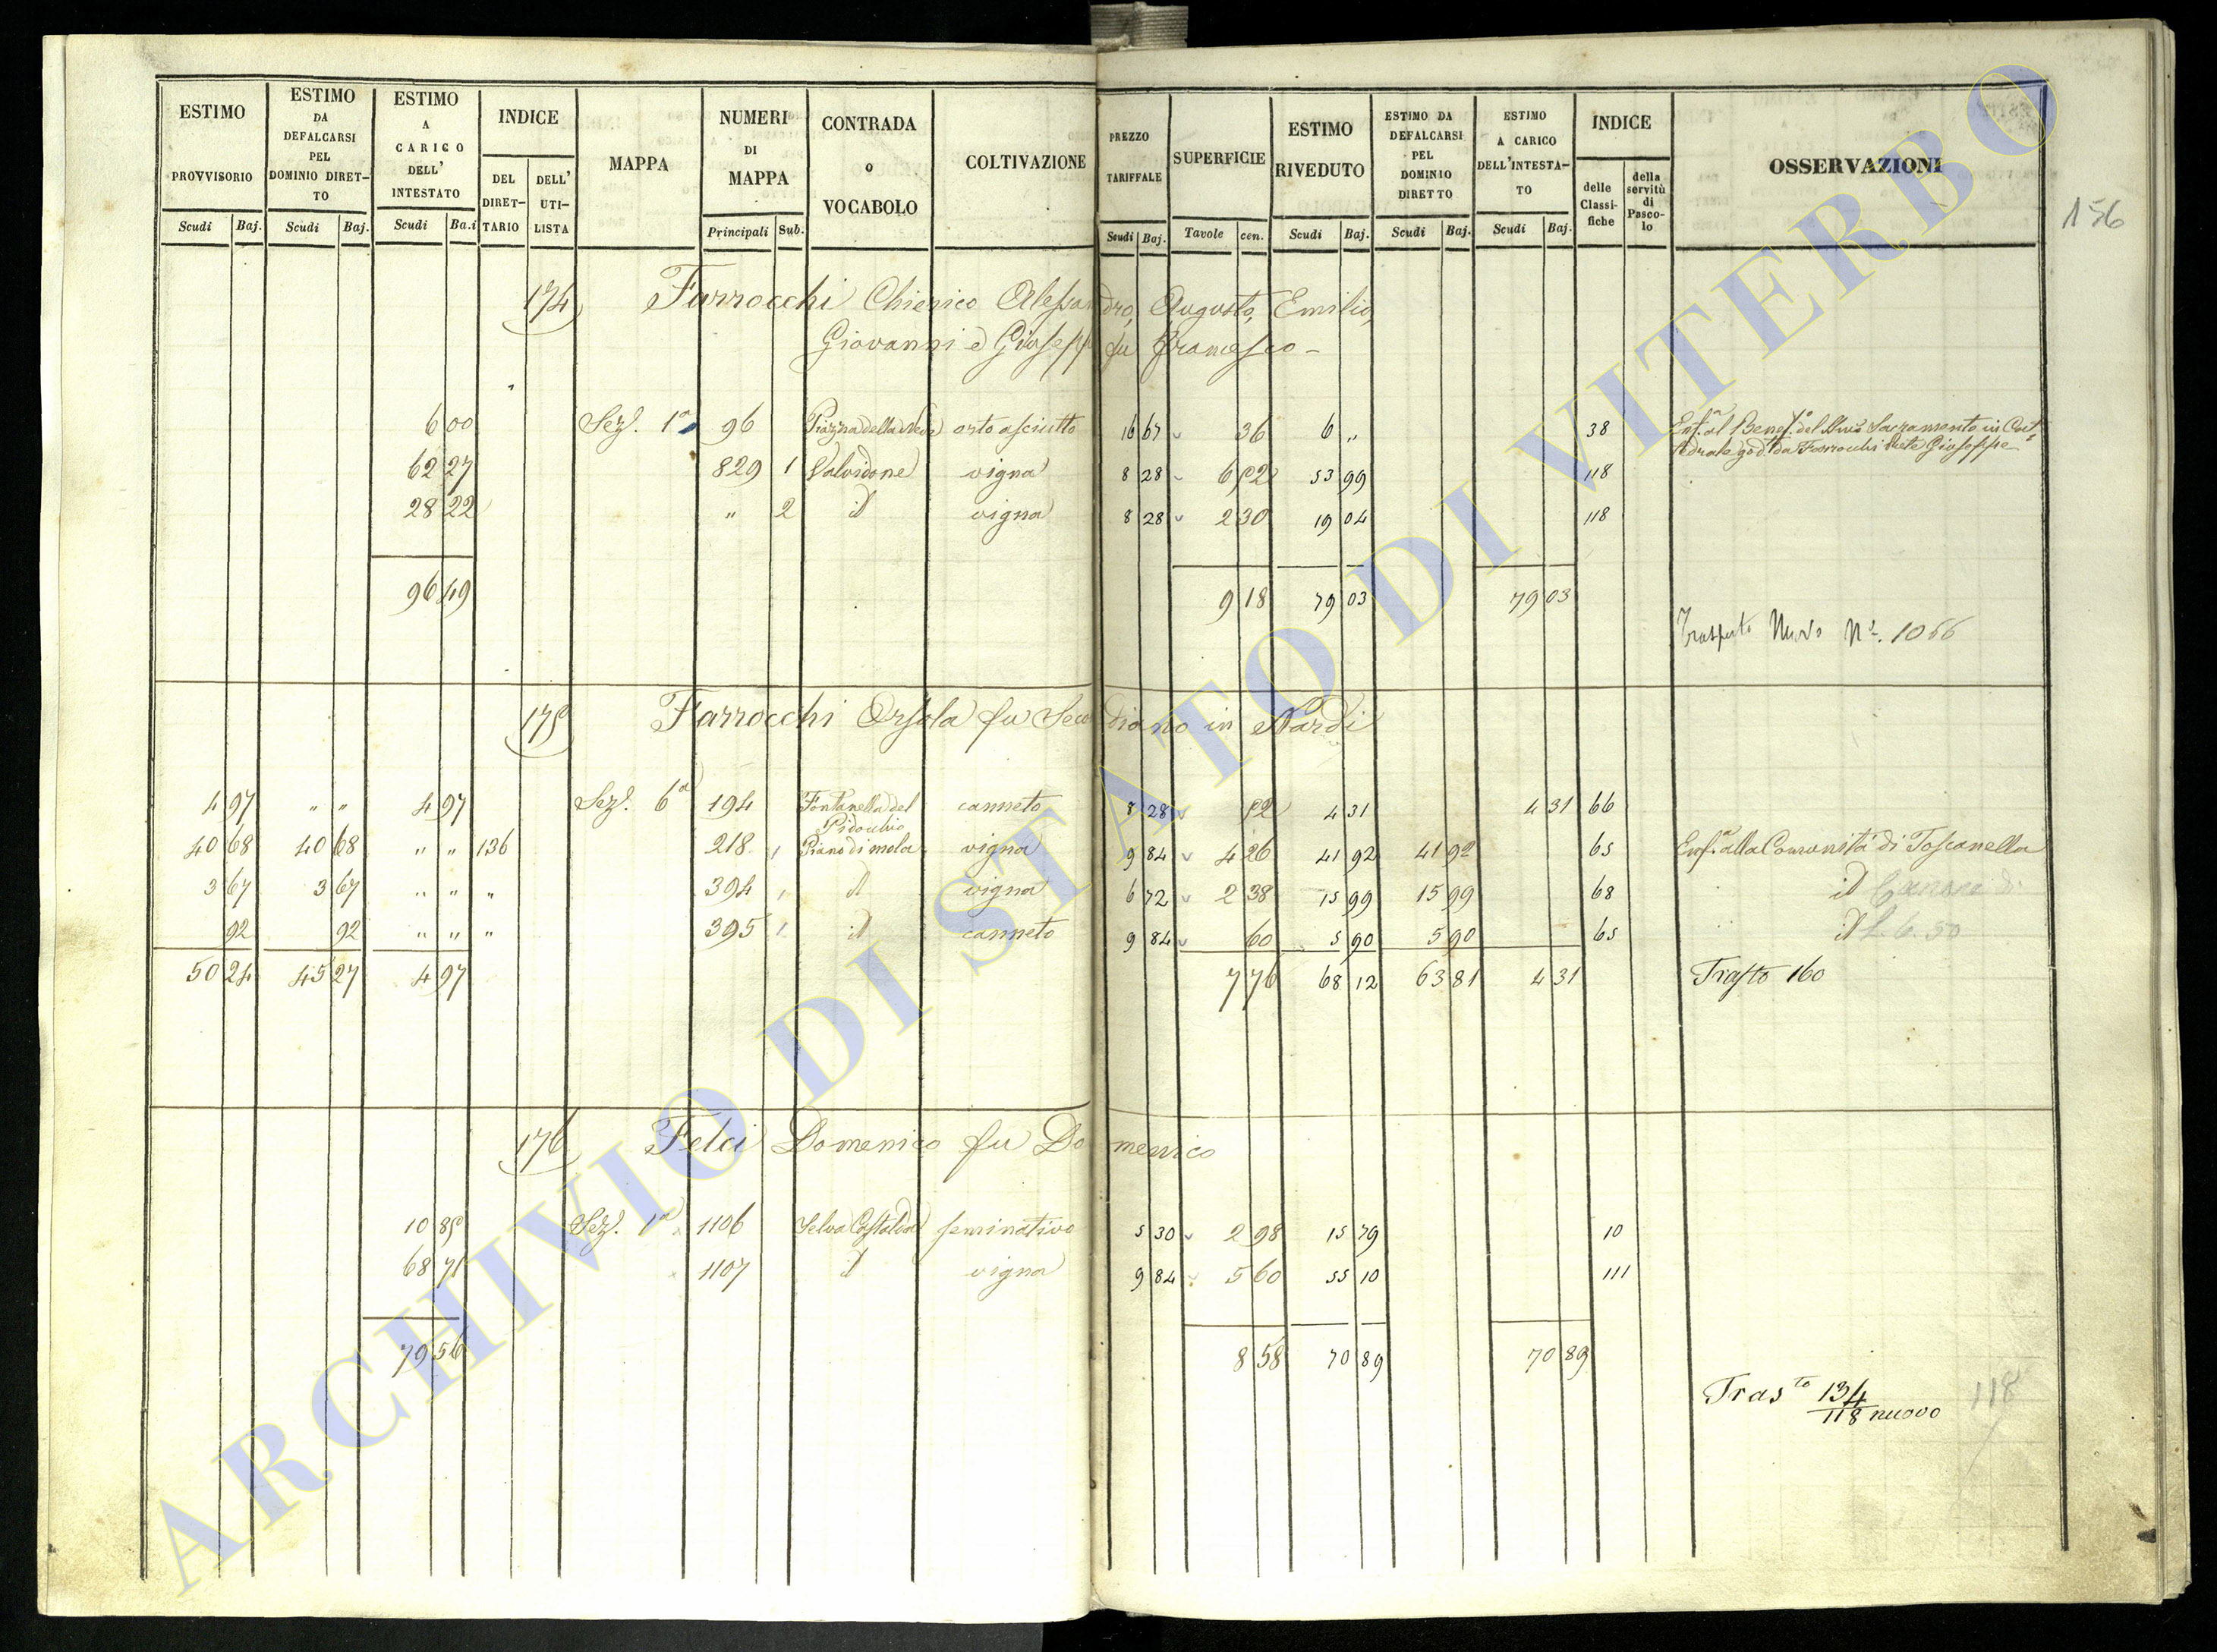 ESTIMO PROVVISORIO Scudi Baj.
ESTIMO DA DEFALCARSI PEL DOMINIO DIRETTO Scudi Baj.
ESTIMO A CARICO DELL' INTESTATO Scudi Ba.i
INDICE DEL DIRETTARIO DELL' UTILISTA
MAPPA
NUMERI DI MAPPA Principali Sub.
CONTRADA o VOCABOLO
COLTIVAZIONE
PREZZO TARIFFALE Scudi Baj.
SUPERFICIE Tavole cen.
ESTIMO RIVEDUTO Scudi Baj.
ESTIMO DA DEFALCARSI PEL DOMINIO DIRETTO Scudi Baj.
ESTIMO A CARICO DELL'INTESTATO Scudi Baj.
INDICE delle Classifiche della servitù di Pascolo
OSSERVAZIONI
156
174 Farrocchi Chierico Alessandro, Augusto, Emilio,
Giovanni e Giuseppe fu Francesco –
6 00 Sez. 1a 96 Piazza della orto asciutto 16 67 36 6 „ 38 Enf.a al Benef.o del Sacramento in Cat
tedrale god.to da Farrocchi Giuseppe
62 27 829 1 Valvidone vigna 8 28 6 52 53 99 118
28 22 „ 2 id vigna 8 28 2 30 19 04 118
96 49 9 18 79 03 79 03
Trasporto Nuovo N. 1066
175 Farrocchi Orsola fu Secondiano in Nardi
4 97 „ „ 4 97 Sez. 6a 194 Fontanella del canneto 8 28 52 4 31 4 31 66
Pidocchio
40 68 40 68 „ „ 136 218 Piano di mola vigna 9 84 4 26 41 92 41 92 65 Enf.a alla Comunità di Toscanella
3 67 3 67 „ „ „ 394 id vigna 6 72 2 38 15 99 15 99 68 id Canone di
92 92 „ „ „ 395 id canneto 9 84 60 5 90 5 90 65 id L. 6.50
50 24 45 27 4 97 7 76 68 12 63 81 4 31 Trasto 160
176 Felci Domenico fu Domenico
10 85 Sez. 1a 1106 Selva Castalda seminativo 5 30 2 98 15 79 10
68 71 1107 id vigna 9 84 5 60 55 10 111
79 56 8 58 70 89 70 89
Trasto 134
118 nuovo
118
ARCHIVIO DI STATO DI VITERBO